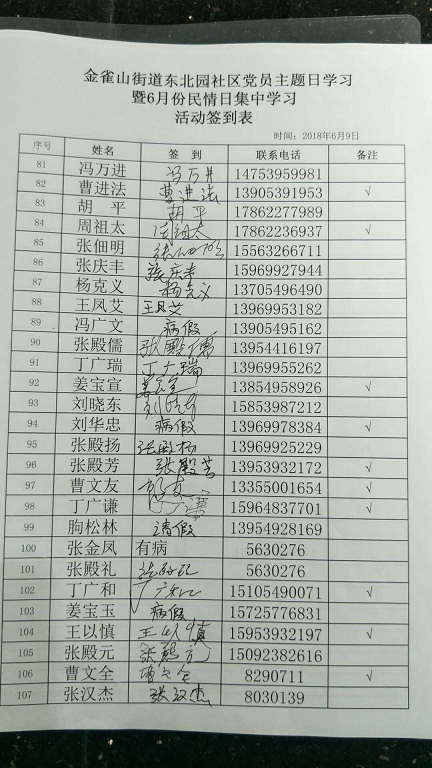 金雀山街道东北园社区党员主题日学习
暨6月份民情日集中学习
活动签到表
时间：2018年6月9日
序号 姓名 签 到 联系电话 备注
81 冯万进 冯万进 14753959981
82 曹进法 曹进法 13905391953 √
83 胡 平 胡平 17862277989
84 周祖太 周祖太 17862236937 √
85 张佃明 15563266711
86 张庆丰 张庆丰 15969927944
87 杨克义 杨克义 13705496490
88 王凤艾 王凤艾 13969953182
89 冯广文 病假 13905495162
90 张殿儒 张殿儒 13954416197
91 丁广瑞 丁广瑞 13969955262
92 姜宝宣 姜宝宣 13854958926 √
93 刘晓东 刘晓东 15853987212
94 刘华忠 病假 13969978384 √
95 张殿扬 张殿扬 13969925229
96 张殿芳 张殿芳 13953932172 √
97 曹文友 13355001654 √
98 丁广谦 15964837701 √
99 胊松林 请假 13954928169
100 张金凤 有病 5630276
101 张殿礼 张殿礼 5630276
102 丁广和 丁广和 15105490071 √
103 姜宝玉 病假 15725776831
104 王以慎 王以慎 15953932197 √
105 张殿元 张殿元 15092382616
106 曹文全 曹文全 8290711 √
107 张汉杰 张汉杰 8030139